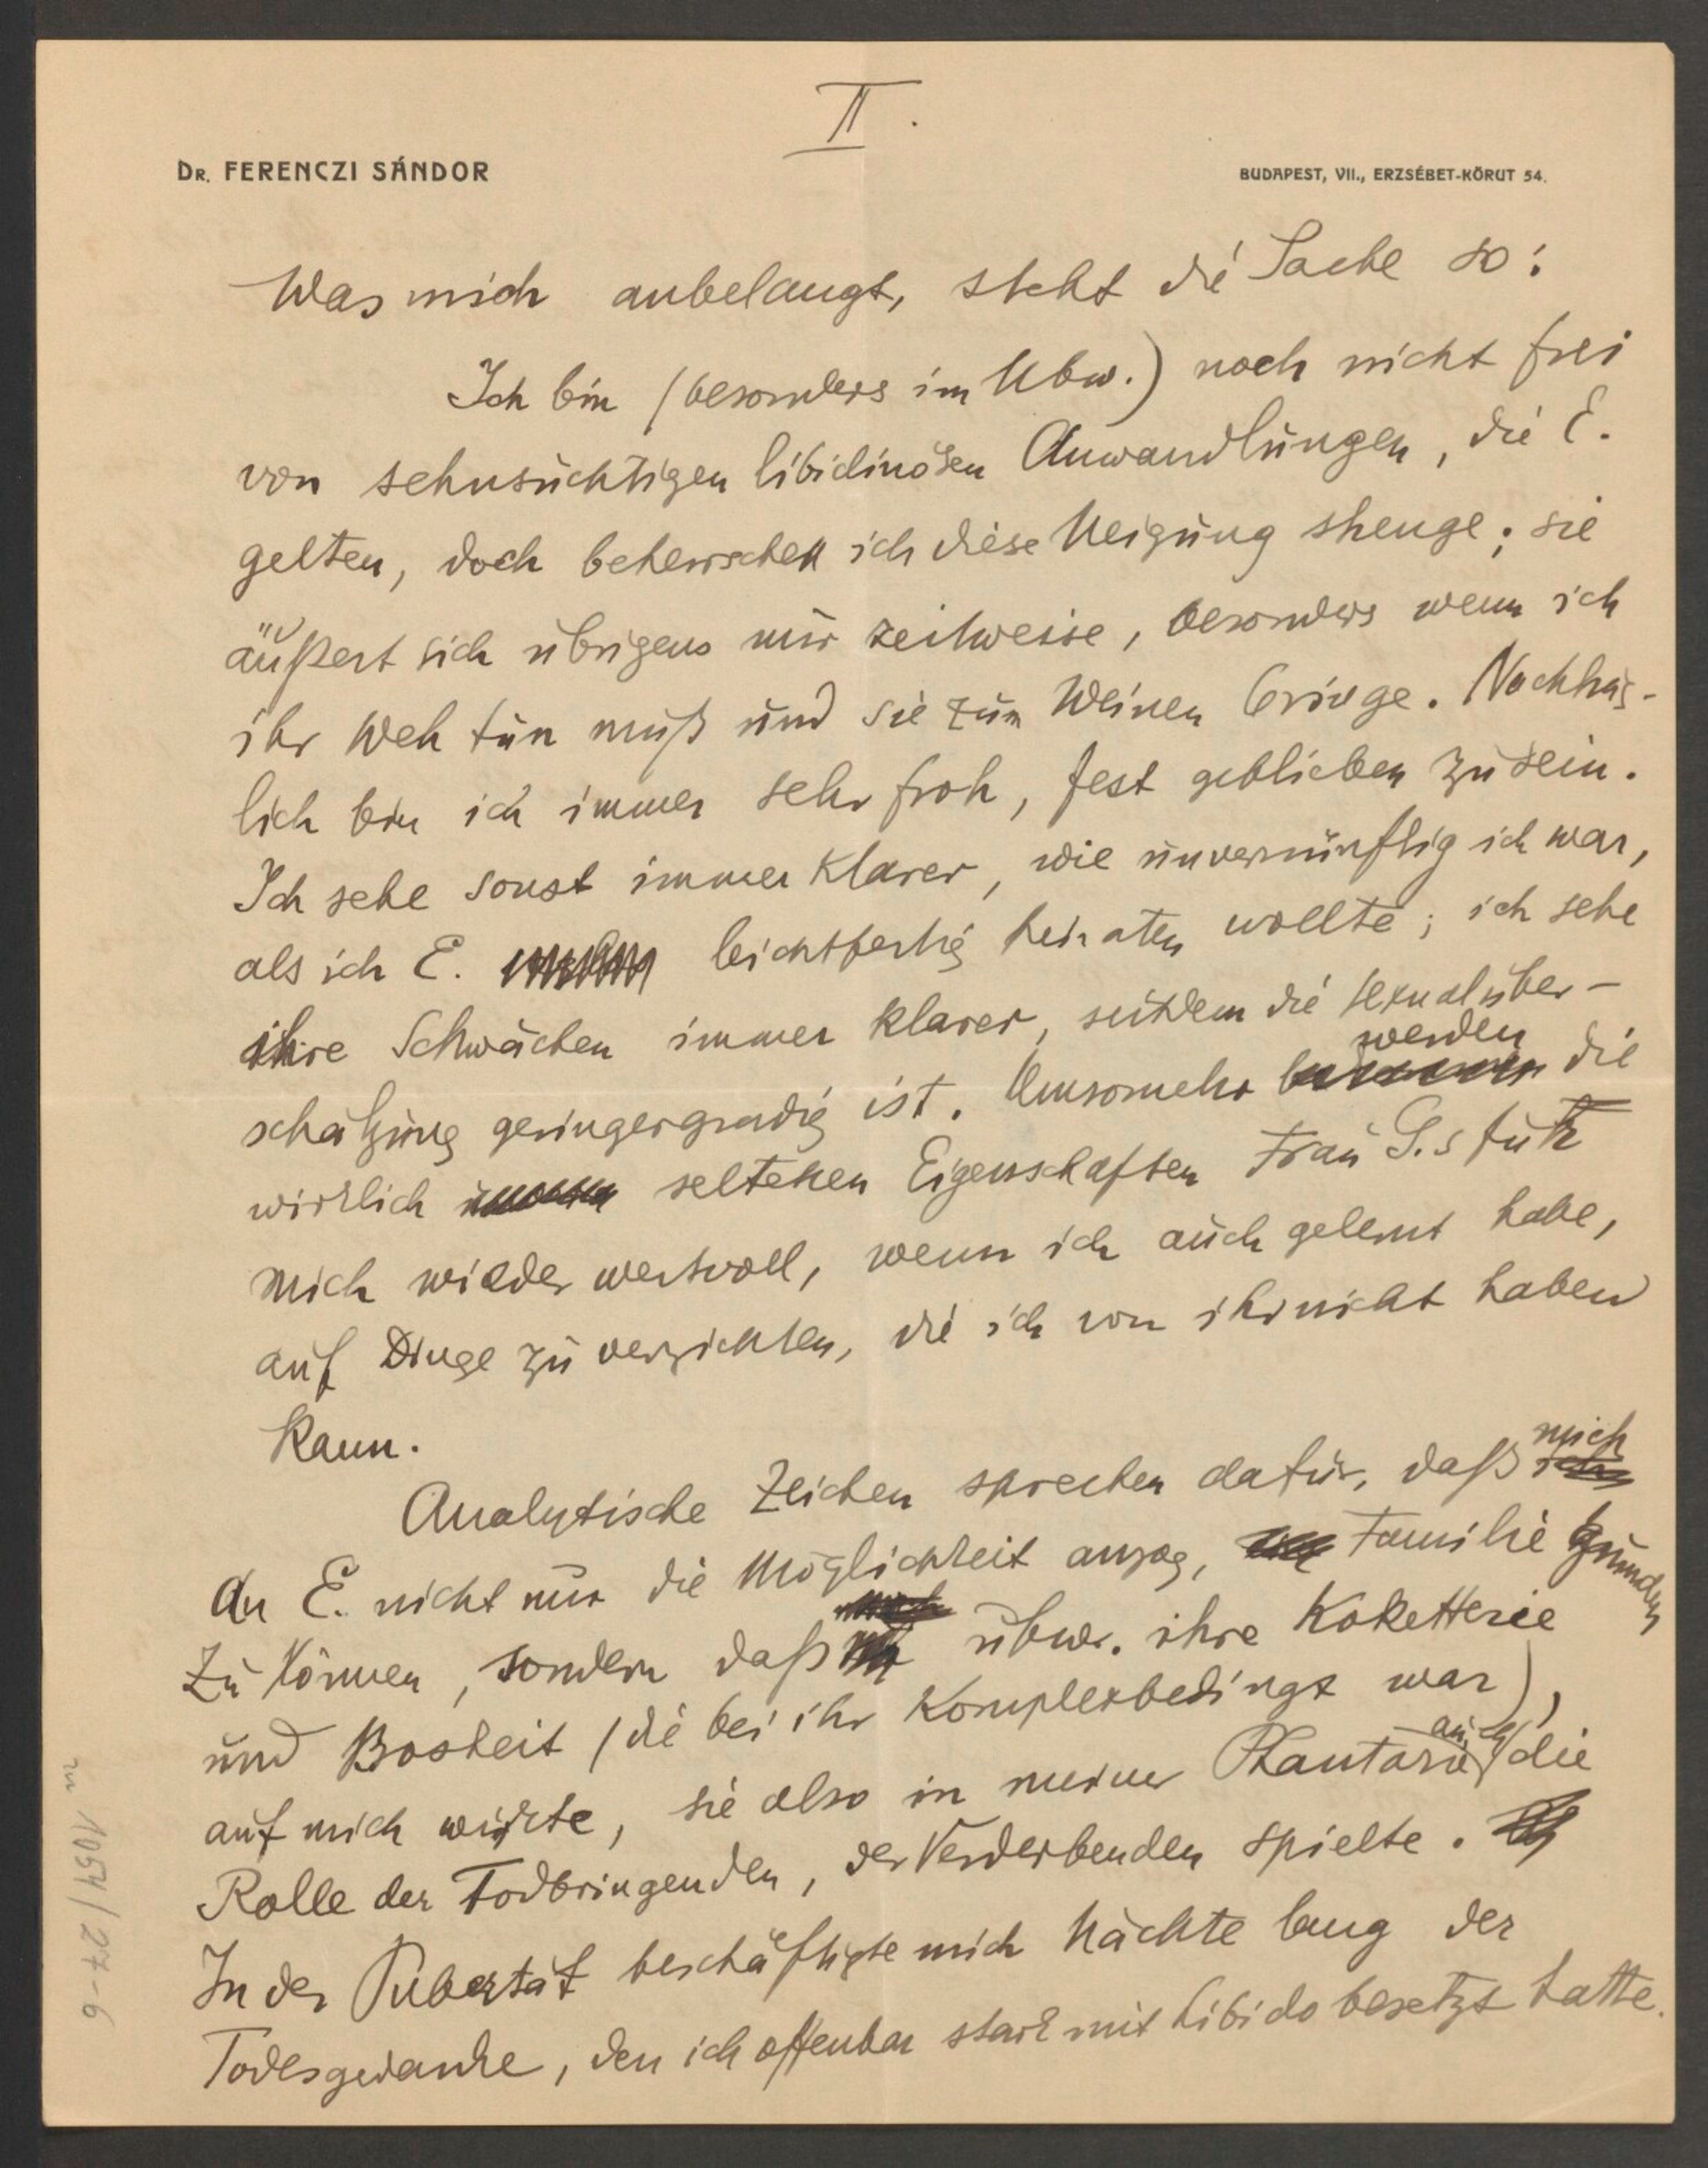 II.
DR. FERENCZI SÁNDOR
BUDAPEST, VII., ERZSÉBET-KÖRUT 54.
Was mich anbelangt, steht die Sache so:
Ich bin (besonders im Ubw.) noch nicht frei
von sehnsüchtigen libidinösen Anwandlungen, die E.
gelten, doch beherrsche ich diese Neigung strenge; sie
äußert sich übrigens nur zeitweise, besonders wenn ich
ihr Weh tun muß und sie zum Weinen bringe. Nachträg-
lich bin ich immer sehr froh, fest geblieben zu sein.
Ich sehe sonst immer klarer, wie unvernünftig ich war,
als ich E. leichtfertig heiraten wollte; ich sehe
ihre Schwächen immer klarer, seitdem die Sexualüber-
schätzung geringergradig ist. Umsomehr werden die
wirklich seltenen Eigenschaften Frau G.s für
mich wieder wertvoll, wenn ich auch gelernt habe,
auf Dinge zu verzichten, die ich von ihr nicht haben
kann.
Analytische Zeichen sprechen dafür, daß mich
an E. nicht nur die Möglichkeit anzog, Familie gründen
zu können, sondern daß ubw. ihre Koketterie
und Bosheit (die bei ihr Komplexbedingt war),
auf mich wirkte, sie also in meiner Phantasie auch die
Rolle der Todbringenden, der Verderbenden spielte.
In der Pubertät beschäftigte mich Nächte lang der
Todesgedanke, den ich offenbar stark mit Libido besetzt hatte.
m 1054/27-6